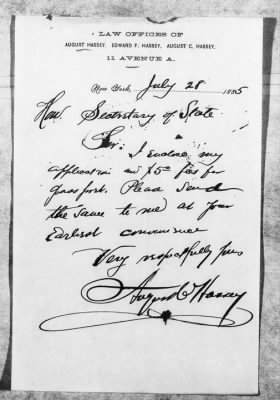 LAW OFFICES OF
AUGUST HASSEY. EDWARD F. HASSEY. AUGUST C. HASSEY.
11 AVENUE A.
New York, July 28 1885
Hon. Secretary of State
Sir: I enclose my
application and $5 fees for
passport. Please send
the same to me at your
Earliest convenience
Very respectfully yours
August C Hassey